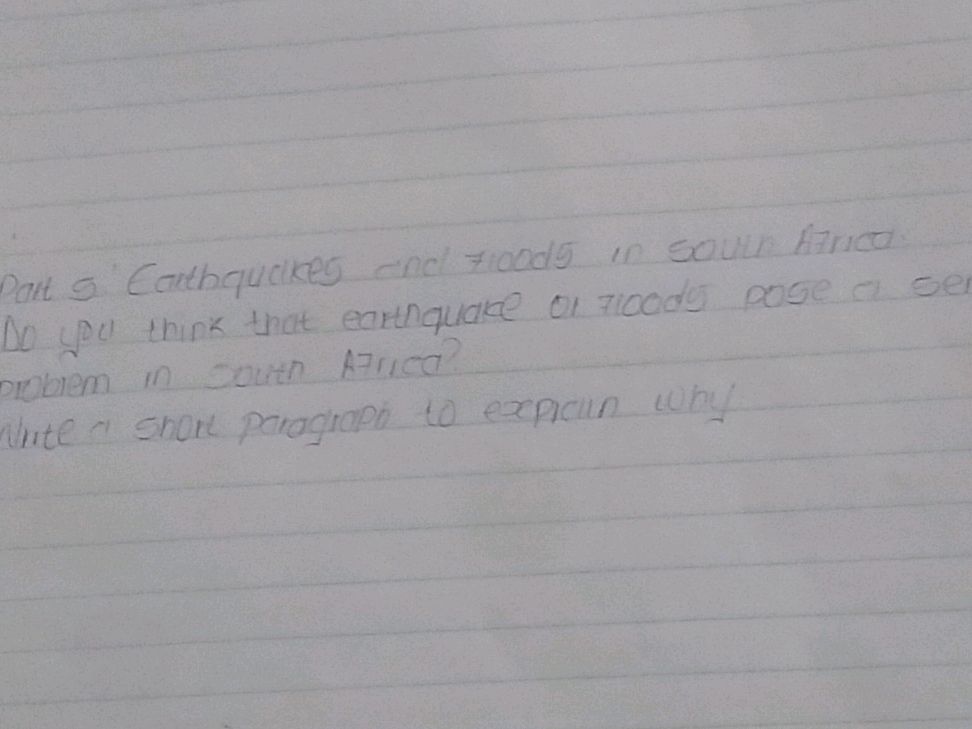 Part 5 Earthquakes and floods in South Africa.
Do you think that earthquake or floods pose a ser
problem in South Africa?
Write a short paragraph to explain why